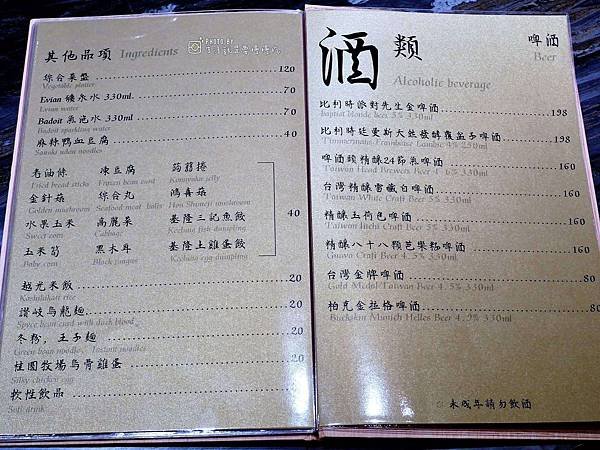 其他品項 Ingredients
PHOTO BY
綜合菜盤 120
Vegetable platter
Evian 礦泉水 330ml. 70
Evian water
Badoit 氣泡水 330ml 70
Badoit sparkling water
麻辣鴨血豆腐 40
Sanuki udon noodles
老油條 凍豆腐 蒟蒻捲
Fried bread sticks Frozen bean curd Konnyaku jelly
金針菇 綜合丸 鴻喜菇
Golden mushroom Seafood meat balls Hon Shimeji mushroom
水果玉米 高麗菜 基隆三記魚餃 40
Sweet corn Cabbage Keelung fish dumpling
玉米筍 黑木耳 基隆土雞蛋餃
Baby corn Black fungus Keelung egg dumpling
越光米飯 20
Koshihikari rice
讚岐烏龍麵 20
Spicy bean curd with duck blood
冬粉，王子麵 20
Green bean noodle, Instant noodles
桂園牧場烏骨雞蛋 20
Silky chicken egg
軟性飲品 50
Soft drink
酒類 啤酒
Alcoholic beverage Beer
比利時派對先生金啤酒 198
baptist blonde beer 5% 330ml
比利時廷曼斯天然發酵覆盆子啤酒 198
Timmermans Framboise Lambic 4% 250ml
啤酒頭精釀24節氣啤酒 160
Taiwan Head Brewers Beer 4-6% 330ml
台灣精釀雪藏白啤酒 160
Taiwan White Craft Beer 5% 330ml
精釀玉荷包啤酒 160
Taiwan litchi Craft Beer 5% 330ml
精釀八十八顆芭樂籽啤酒 160
Guava Craft Beer 4.5% 330ml
台灣金牌啤酒 80
Gold Medal Taiwan Beer 4.5% 330ml
柏克金拉格啤酒 80
Buckskin Munich Helles Beer 4.9% 330ml
未成年請勿飲酒